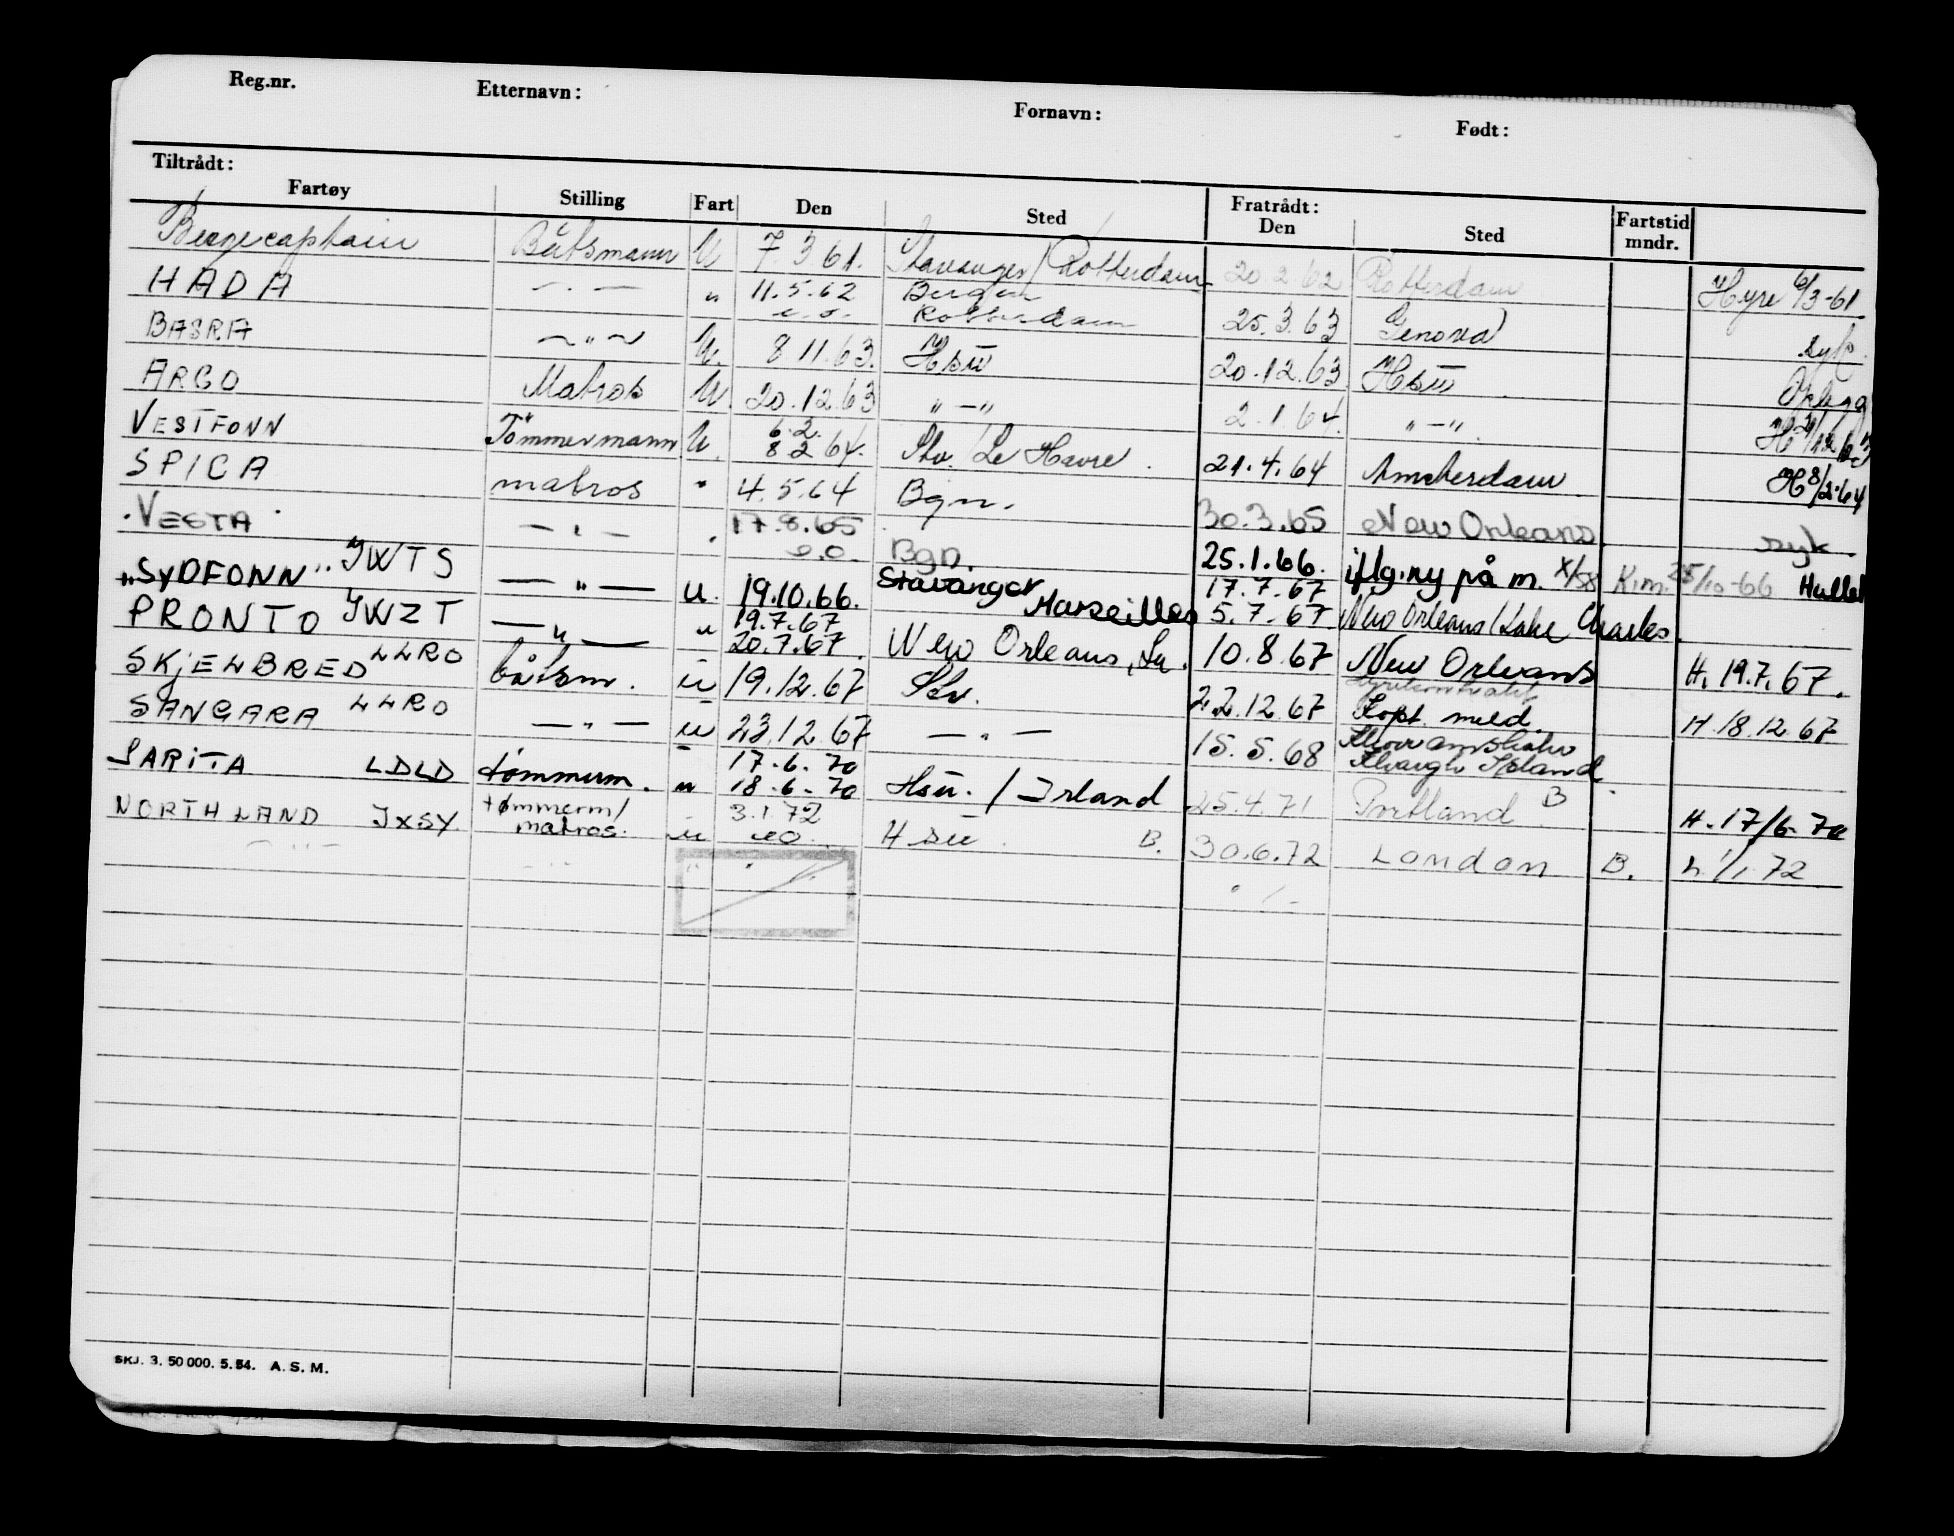 Reg.nr. Etternavn: Fornavn: Født:
Tiltrådt: Fratrådt:
Fartøy Stilling Fart Den Sted Den Sted Fartstid mndr.
Bergecaptain Båtsmann U 7.3 61. Stavanger/Rotterdam 20.2.62 Rotterdam Hyre 6/3-61
HADA — . — " 11.5.62 e.o. Bergen Rotterdam 25.3.63 Genova syk.
BASRA ~ " ~ U. 8.11.63. Hsu 20.12.63 Hsu Opplegg
ARGO Matros U. 20.12.63 " — " 2.1.64. " — "
VESTFONN Tömmermann U. 6.2. 8.2 64. Stv. / Le Havre. 21.4.64 Amsterdam H 8/2-64
SPICA matros " 4.5.64 Bgn. 30.3.65 New Orleans syk.
"VESTA" — " — " 17.8.65 e.o. Bgn. 25.1.66. iflg. ny på m. x/58
"SYDFONN" JWTS — " — U. 19.10.66. Stavanger Marseilles 17.7.67 5.7.67 New Orleans/Lake Charles.
PRONTO JWZT — " — " 19.7.67 20.7.67. New Orleans, La. 10.8.67 New Orleans H. 19.7.67.
SKJELBRED LLRO båtsm. u 19.12.67 Stv. 22.12.67 Kopt. meld. H 18.12.67
SANGARA LLRO — " — u 23.12.67 — " — 15.5.68
SARITA LDLD tømmerm. " 17.6.70 18.6.70 Hsu. / Irland 25.4.71 Portland B H. 17/6-70
NORTHLAND JXSY. tømmerm/ matros. u 3.1.72 eo Hsu B. 30.6.72 London B. h. 1/1 72
— " — — " — " "
SKJ. 3. 50 000. 5. 54. A. S. M.